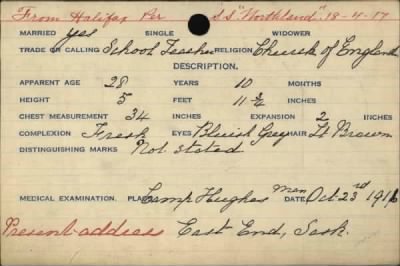 From Halifax Per S.S. "Northland" 18-4-17
MARRIED yes SINGLE WIDOWER
TRADE OR CALLING School Teacher RELIGION Church of England
DESCRIPTION.
APPARENT AGE 28 YEARS 10 MONTHS
HEIGHT 5 FEET 11 3/4 INCHES
CHEST MEASUREMENT 34 INCHES EXPANSION 2 INCHES
COMPLEXION Fresh EYES Bluish Grey HAIR Lt Brown
DISTINGUISHING MARKS Not stated
MEDICAL EXAMINATION. PLACE Camp Hughes Man DATE Oct. 23rd 1916
Present address East End, Sask.